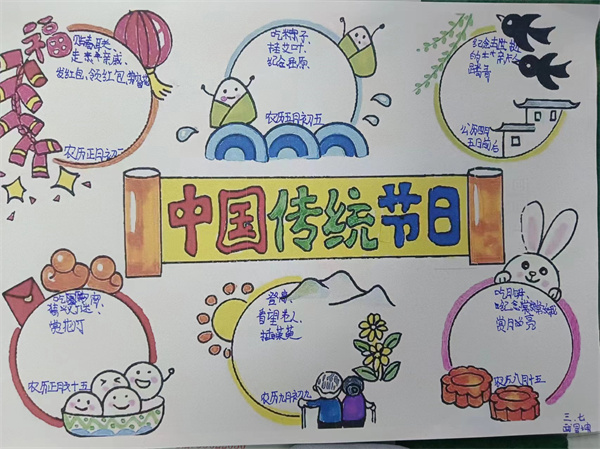 福
贴春联
走亲亲戚
发红包、领红包
农历正月初一
吃粽子
挂艾叶
纪念屈原
农历五月初五
纪念去世
的亲人
踏青
公历四月
五日前后
中国传统节日
猜灯谜
赏花灯
农历正月十五
登高
看望老人
插茱萸
农历九月初九
吃月饼
纪念嫦娥
赏月亮
农历八月十五
三、七